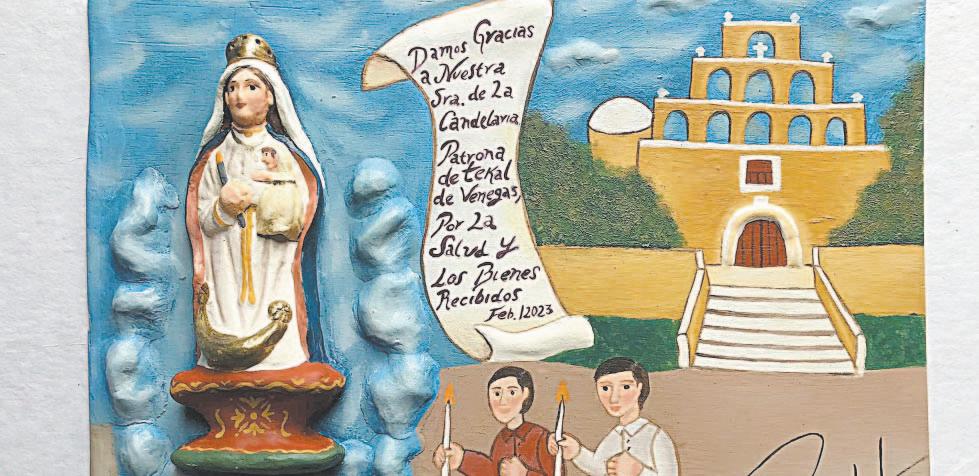 Damos Gracias
a Nuestra
Sra. de La
Candelaria.
Patrona
de tekal
de Venegas,
Por La
Salud y
Los Bienes
Recibidos
Feb. / 2023